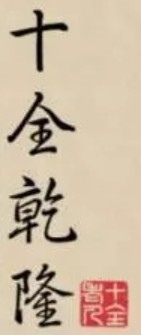 十全乾隆
十全老人